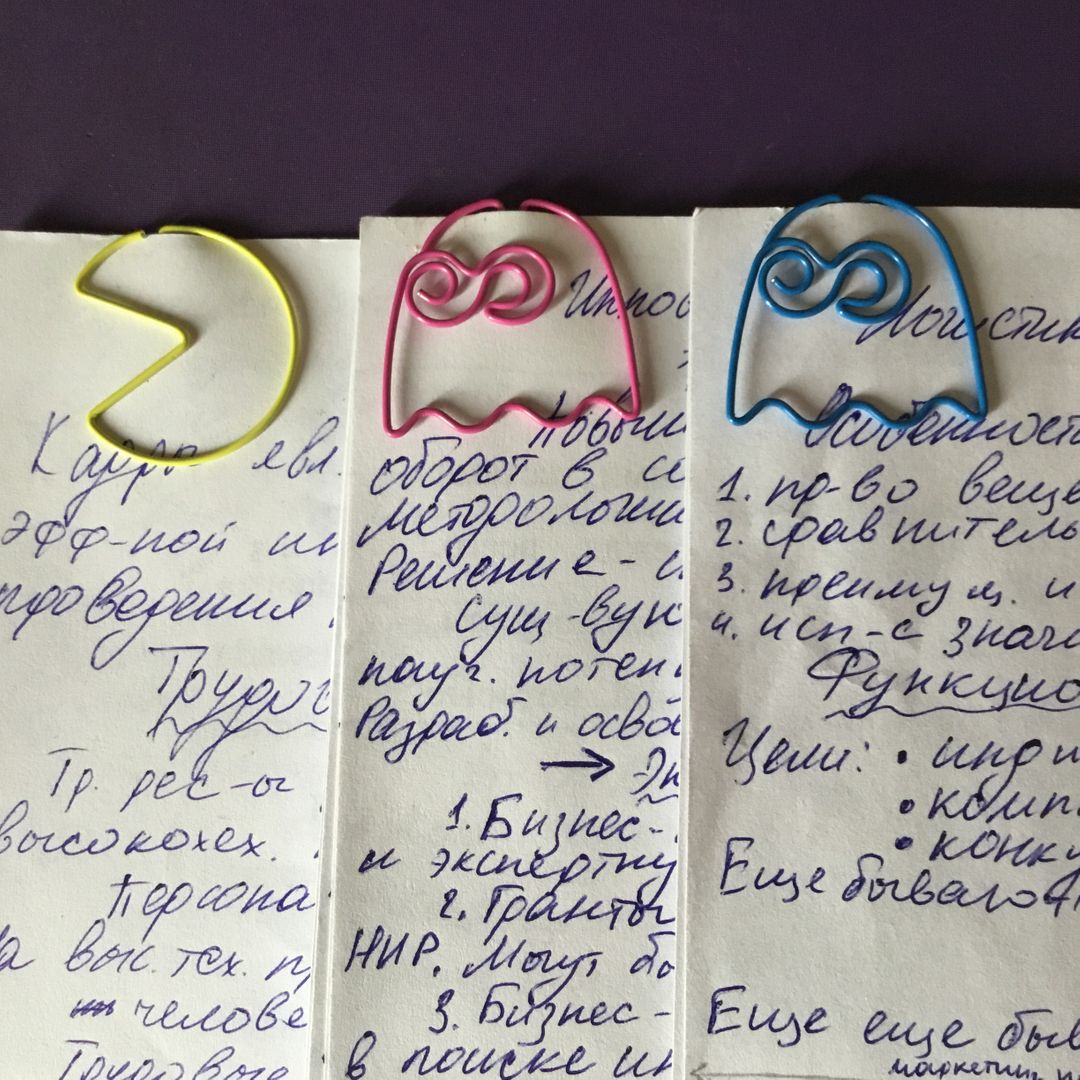 Кадры явл.
эфф-ной ин
проведения
Трудов
Тр. рес-ы
высокохех.
Персона
На выс. тех. п
челове
Трудовые
Инпов
Новыш
оборот в се
методологии
Решение - и
сущ-вую
науч. потен
Разраб. и осво
→ Эк
1. Бизнес-
и экспертну
2. Гранты
НИР. Могут бы
3. Бизнес-
в поиске ин
Логистик
Особенност
1. пр-во веще
2. сравнитель
3. преимущ. и
4. исп-е значи
Функцио
Цели: • инди
• комп
• конку
Еще бывают
Еще еще быв
маркетинг